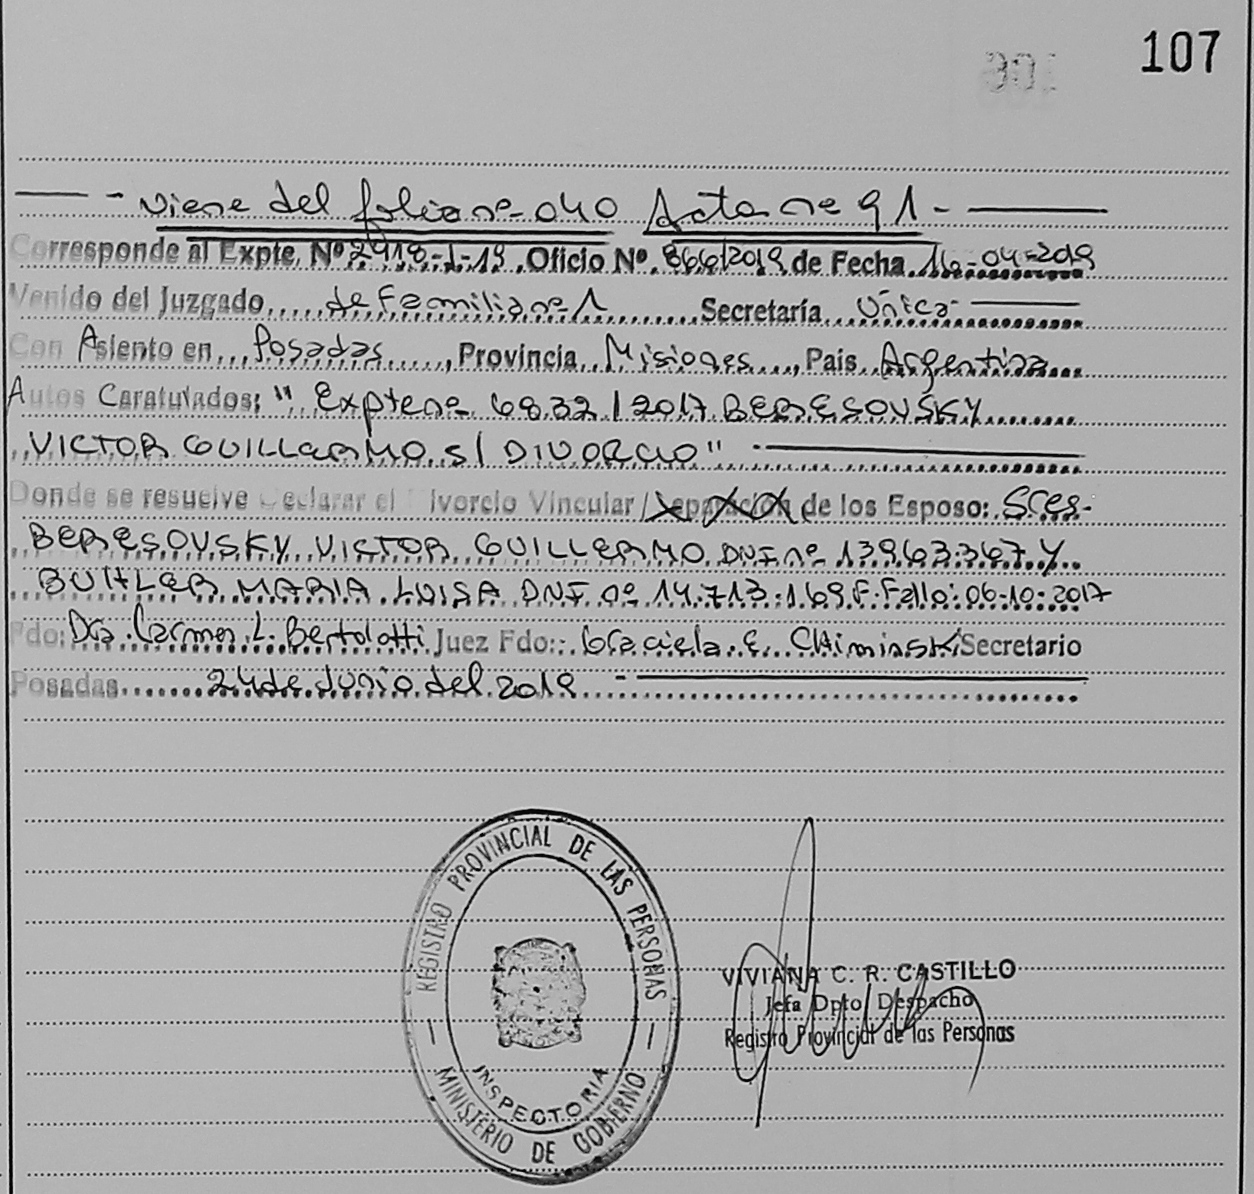 107
106
- Viene del folio nº 040 Acta nº 91 -
Corresponde al Expte. Nº 2918-J-19. Oficio Nº 866/2019 de Fecha 16-04-2019
Venido del Juzgado de Familia nº 1 Secretaría Única
Con Asiento en Posadas, Provincia Misiones, País Argentina
Autos Caratulados: "Expte nº 6832/2017 BERESOVSKY
VICTOR GUILLERMO s/ DIVORCIO"
Donde se resuelve Declarar el Divorcio Vincular / Separación de los Esposo: Sres-
BERESOVSKY VICTOR GUILLERMO DNI nº 13.963.367 Y
BUHLER MARIA LUISA DNI nº 14.713.169 F. Fallo: 06-10-2017
Fdo: Dra. Carmen L. Bertolotti Juez Fdo: Graciela E. Chiminski Secretario
Posadas 24 de Junio del 2019
REGISTRO PROVINCIAL DE LAS PERSONAS
INSPECTORIA
MINISTERIO DE GOBIERNO
VIVIANA C. R. CASTILLO
Jefa Dpto Despacho
Registro Provincial de las Personas